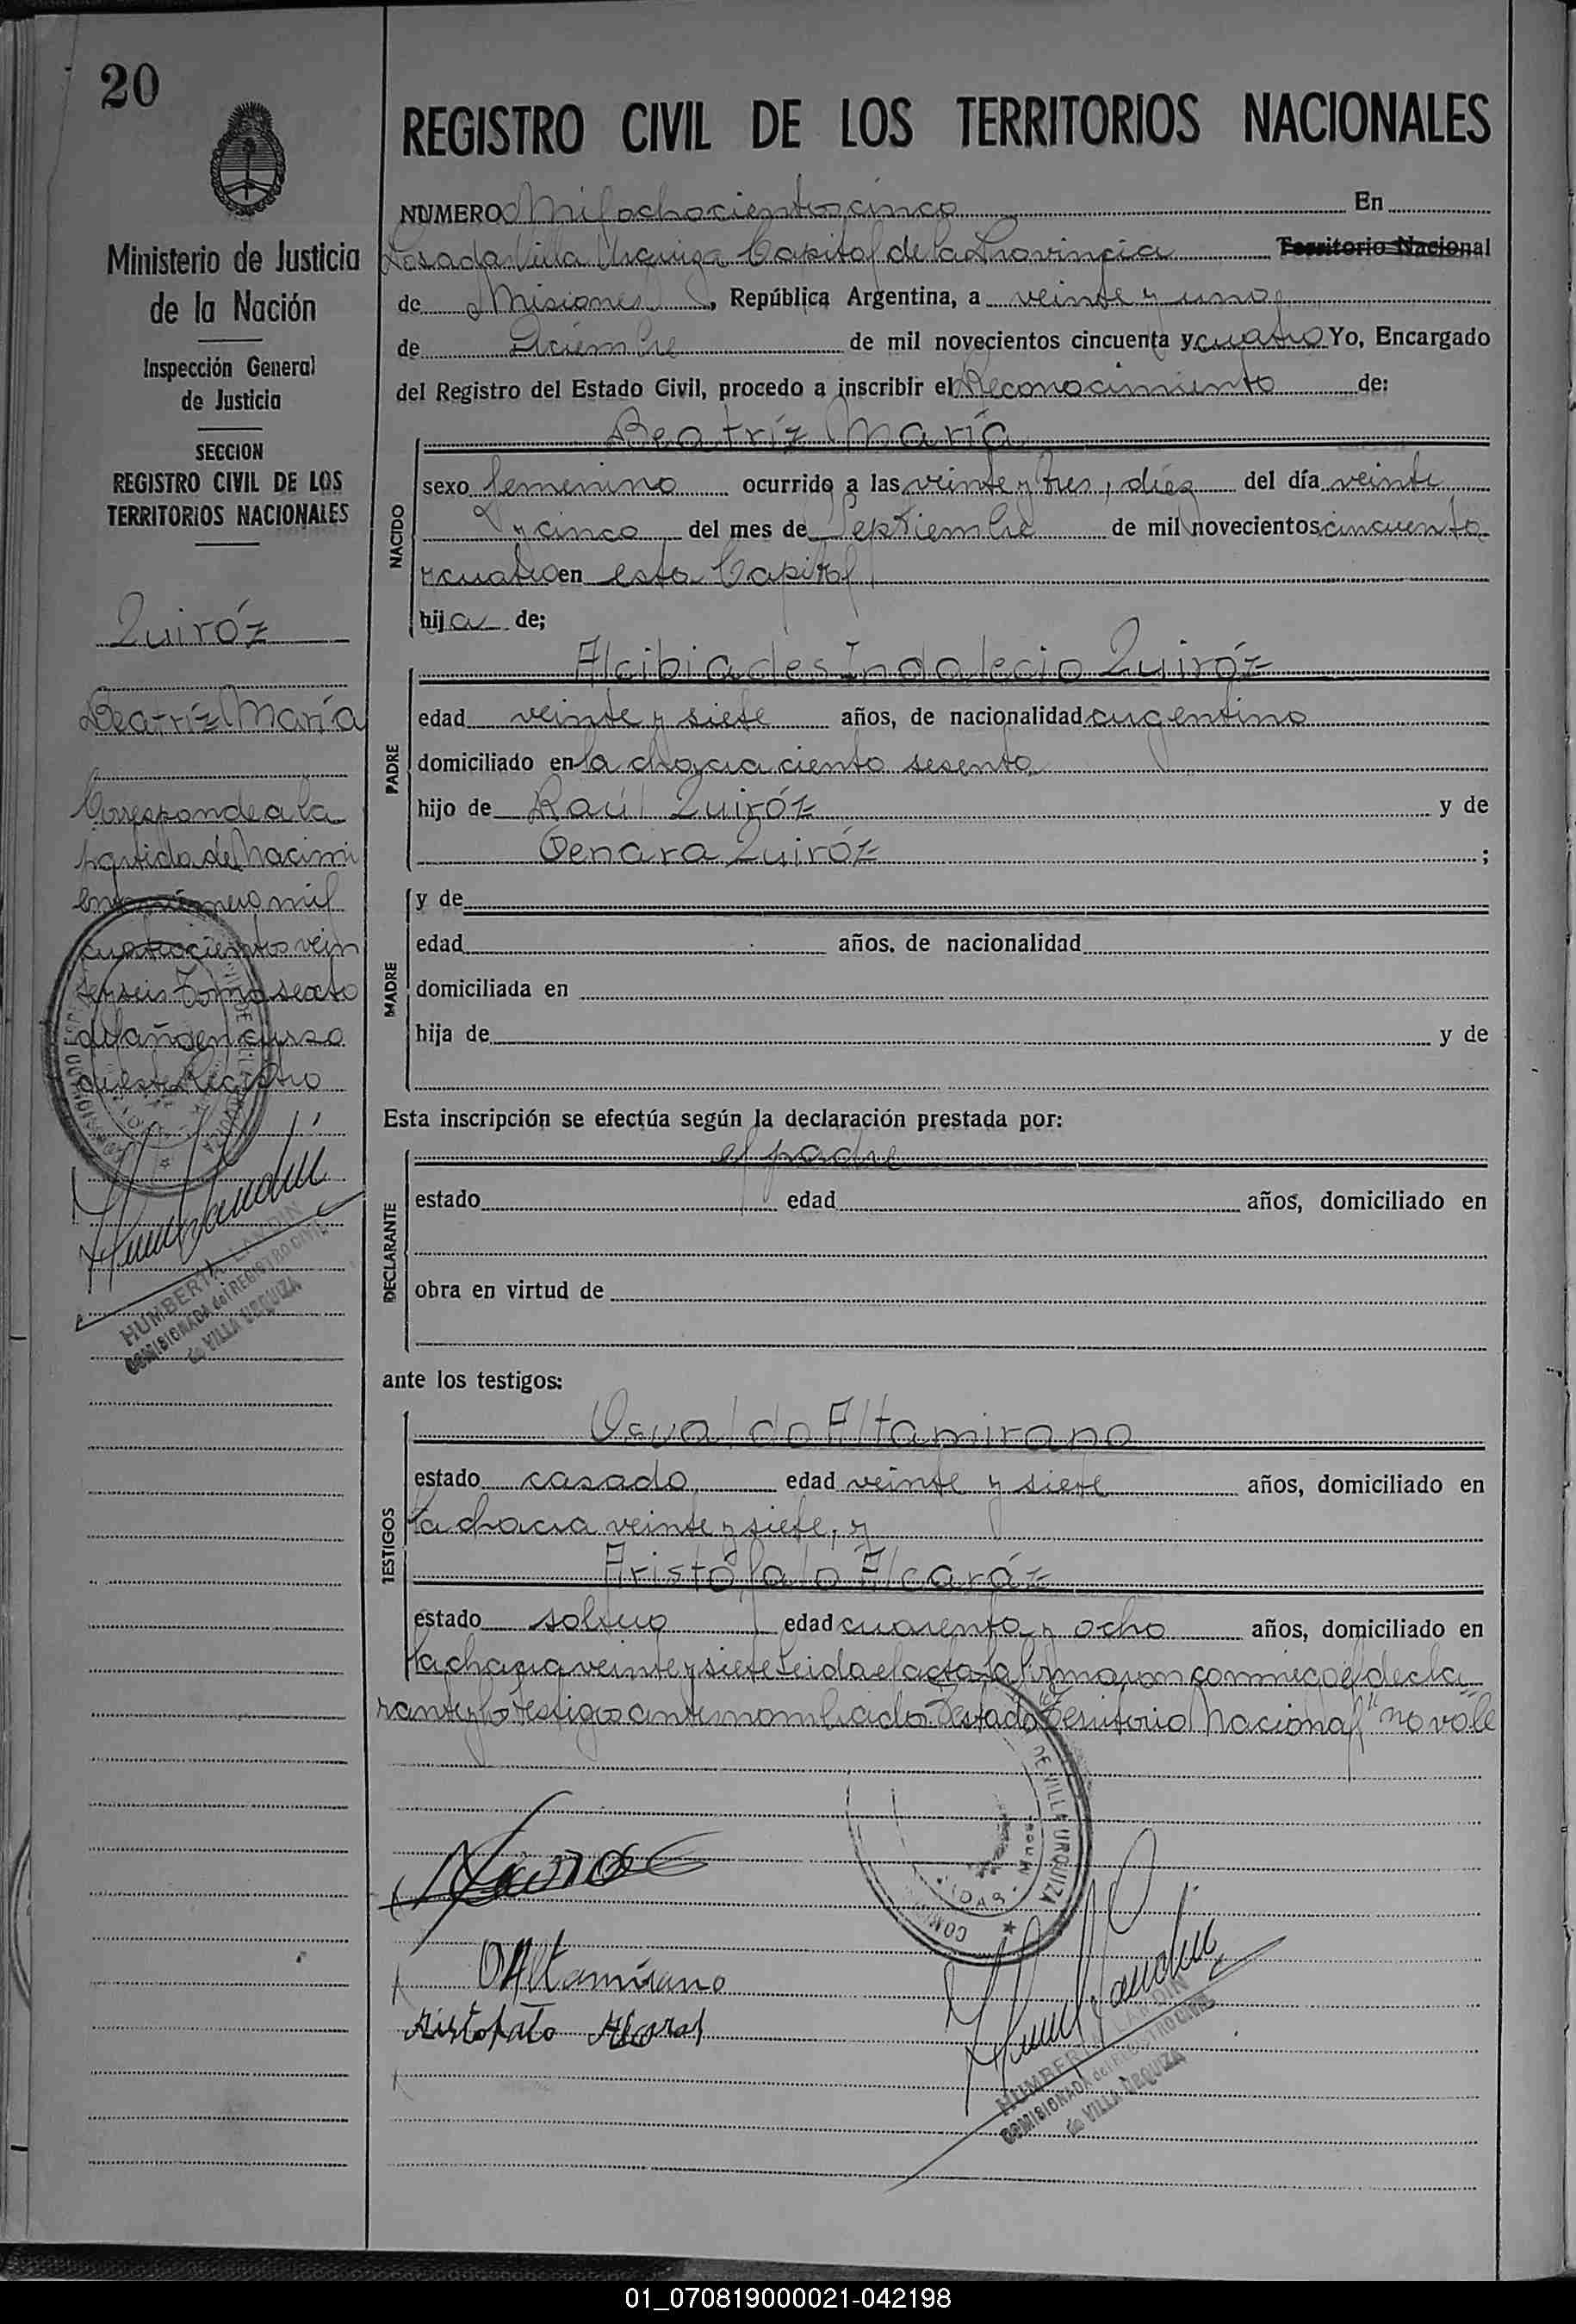 20
REGISTRO CIVIL DE LOS TERRITORIOS NACIONALES
Ministerio de Justicia
de la Nación
Inspección General
de Justicia
SECCION
REGISTRO CIVIL DE LOS
TERRITORIOS NACIONALES
Quiróz
Beatríz María
Corresponde a la
partida de Nacimi
ento número mil
cuatrocientos vein
te y seis Tomo sexto
del año en curso
de este Registro
HUMBERTA LANDIN
COMISIONADA del REGISTRO CIVIL
de VILLA URQUIZA
NUMERO Mil ochocientos cinco En
Posadas Villa Urquiza Capital de la Provincia Territorio Nacional
de Misiones, República Argentina, a veinte y uno
de Diciembre de mil novecientos cincuenta y cuatro Yo, Encargado
del Registro del Estado Civil, procedo a inscribir el Reconocimiento de:
NACIDO
Beatríz María
sexo femenino ocurrido a las veinte y tres, diéz del día veinte
y cinco del mes de Septiembre de mil novecientos cincuenta
y cuatro en esta Capital
hija de;
PADRE
Alcibiades Indalecio Quiróz
edad veinte y siete años, de nacionalidad argentino
domiciliado en la chacra ciento sesenta
hijo de Raúl Quiróz y de
Genara Quiróz ;
MADRE
y de
edad años, de nacionalidad
domiciliada en
hija de y de
Esta inscripción se efectúa según la declaración prestada por:
DECLARANTE
el padre
estado edad años, domiciliado en
obra en virtud de
ante los testigos:
TESTIGOS
Osvaldo Altamirano
estado casado edad veinte y siete años, domiciliado en
la chacra veinte y siete, y
Aristófalo Alcaráz
estado soltero edad cuarenta y ocho años, domiciliado en
la chacra veinte y siete Leida el acta la firmaron conmigo el decla
rante y los testigos antenombrados Testado "Territorio Nacional" no vale
DE VILLA URQUIZA
OAltamirano
HUMBERTA LANDIN
COMISIONADA del REGISTRO CIVIL
de VILLA URQUIZA
01_070819000021-042198